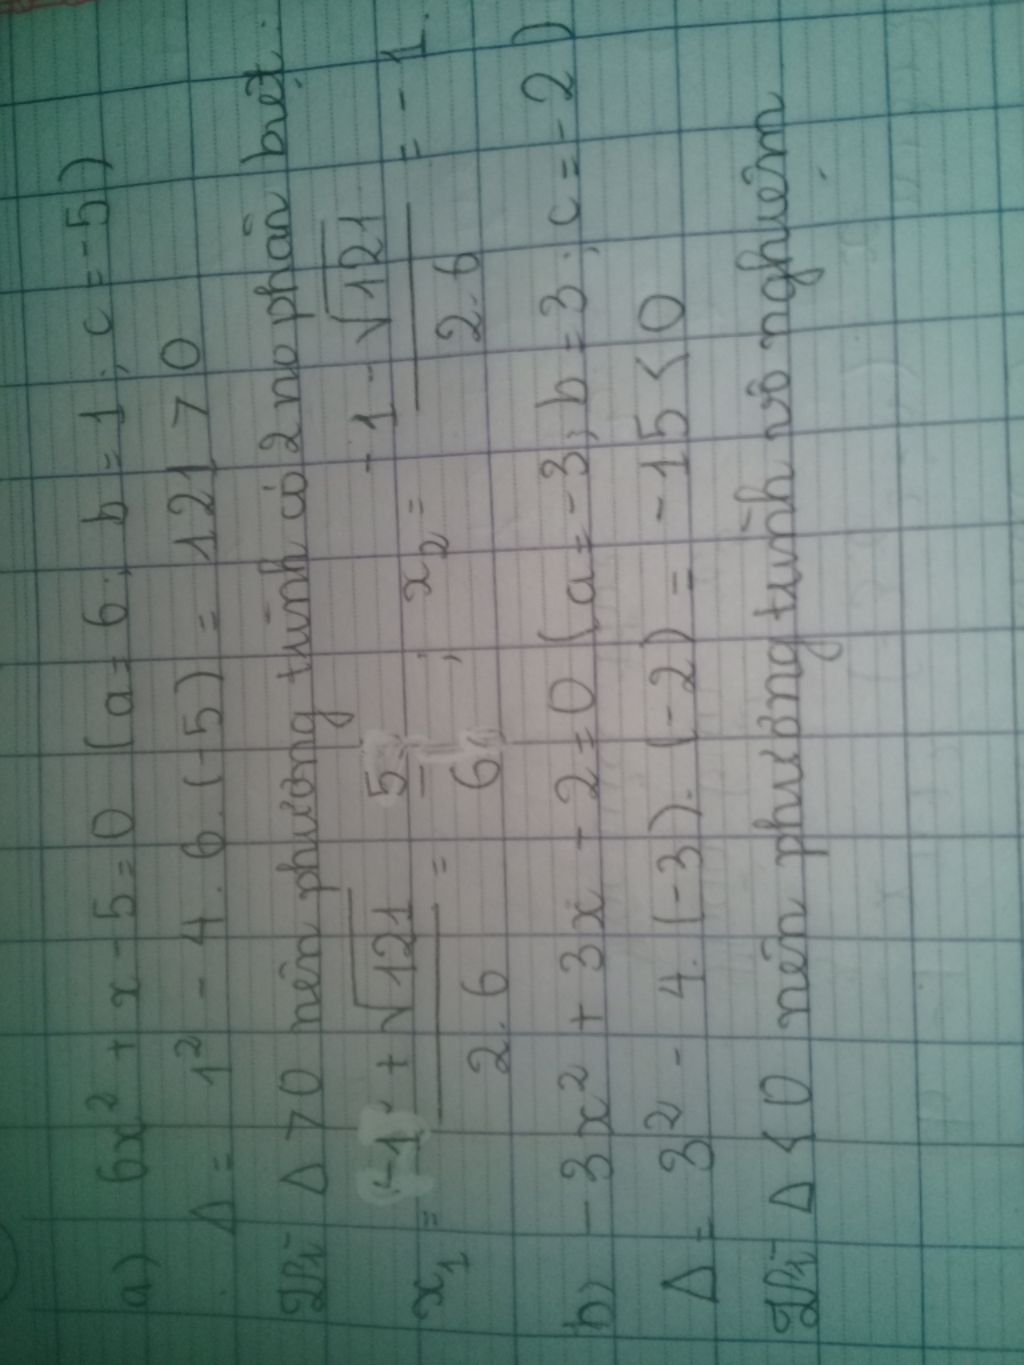 a) 6x² + x - 5 = 0 (a = 6; b = 1; c = -5)
Δ = 1² - 4.6.(-5) = 121 > 0
Vì Δ > 0 nên phương trình có 2 no phân biệt.
x₁ = (-1 + √121)/(2.6) = 5/6; x₂ = (-1 - √121)/(2.6) = -1.
b) -3x² + 3x - 2 = 0 (a = -3; b = 3; c = -2)
Δ = 3² - 4.(-3).(-2) = -15 < 0
Vì Δ < 0 nên phương trình vô nghiệm